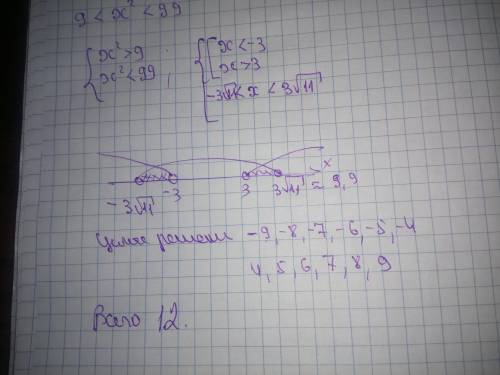 9 < x² < 99
{ x² > 9
x² < 99 ;
{ [ x < -3
x > 3
-3√11 < x < 3√11
x
-3√11 -3 3 3√11 = 9,9
Целые решени -9, -8, -7, -6, -5, -4
4, 5, 6, 7, 8, 9
Всего 12.